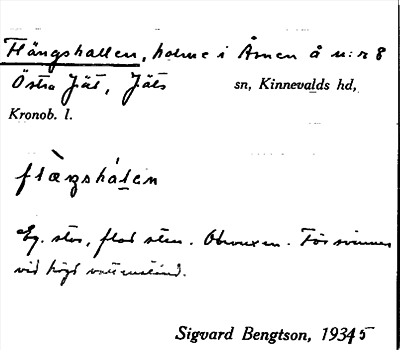 Flängshallen, holme i Åsnen å n:r 8
Östra Jät, Jäts sn, Kinnevalds hd,
Kronob. l.
flæ̀ŋshálen
Eg. stor, flat sten. Obevuxen. Försvinner
vid högt vattenstånd.
Sigvard Bengtson, 1934 5